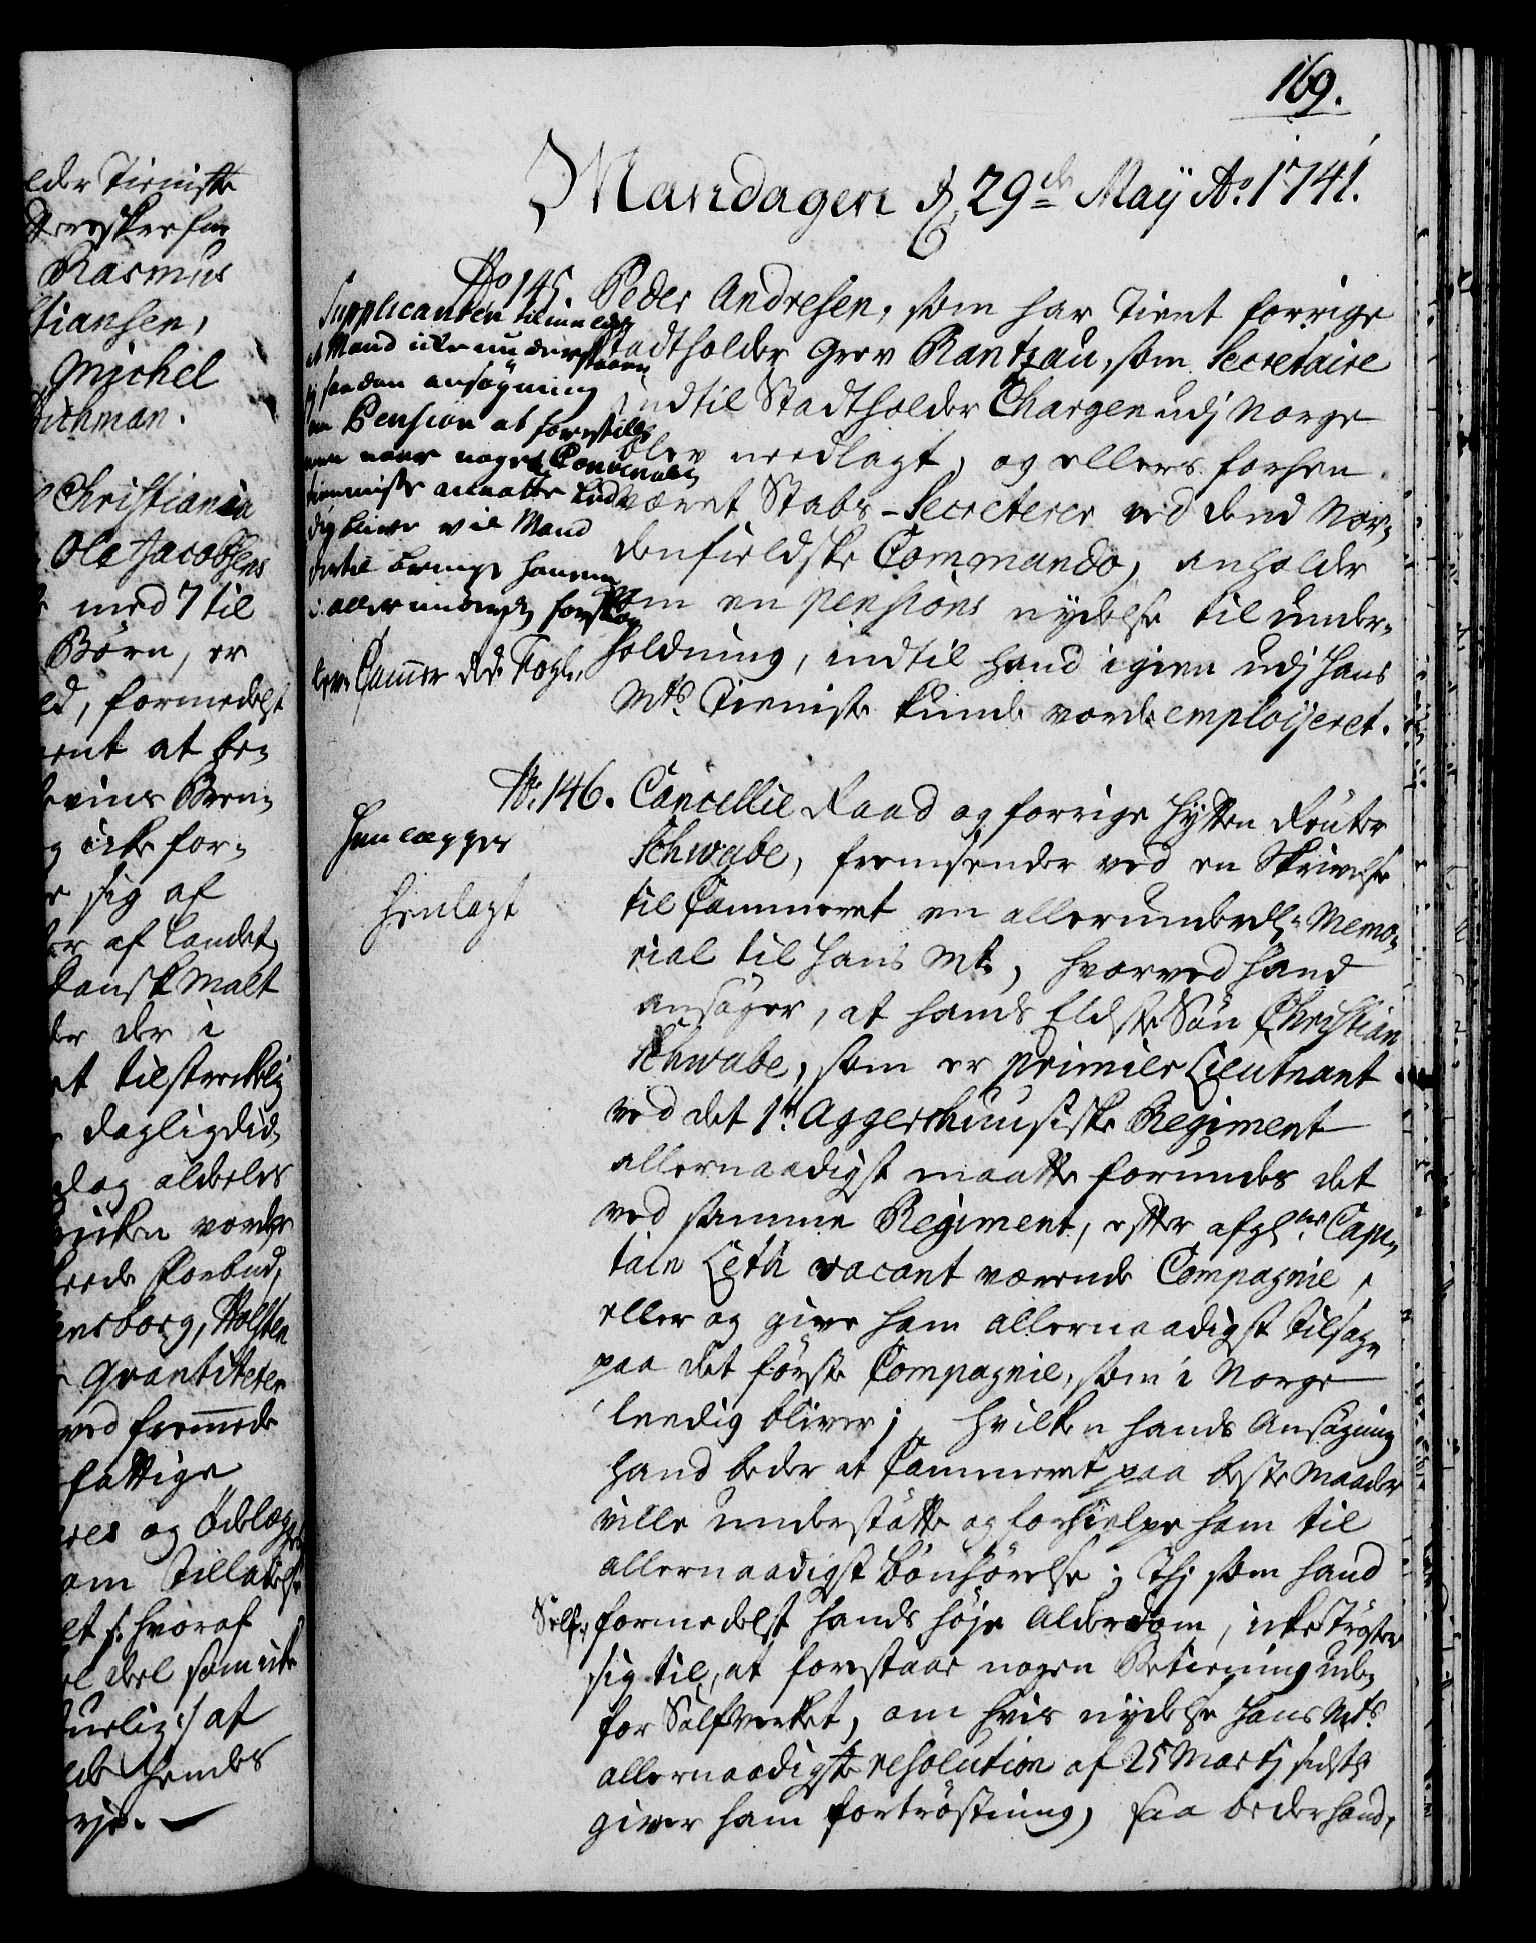 169.
Mandagen d. 29de Maÿ Ao. 1741.
No 145. Peder Andresen, som har tient forrige
Stadtholder Grev Rantzau, som Secretaire
indtil Stadtholder Chargen udj Norge
blev nedlagt, og ellers forhen
været Stabs-Secreterer ved dend Nor-
denfieldske Commando, anholder
om en pensions nydelse til under-
holdning, indtil hand igien udj Hans
Mts. Tieniste kunde vorde emploÿeret.
Supplicanten tilmeldes
at Mand icke understaar
sig saadan ansøgning
om Pension at forestille
men naar nogen Convenable
tienniste maatte leed-
dig blive vil Mand
dertil bringe hannem
i allerunderd. forslag
Cammer Rd. Fogh.
No. 146. Cancellie Raad og forrige Hÿtten Reuter
Schwabe, fremsender ved en Skrivelse
til Cammeret en allerunderd. Memo-
rial til Hans Mt., hvorved hand
ansøger, at hands Eldste Søn Christian
Schwabe, som er premier Lieutnant
ved det 1te Aggershuusiske Regiment
allernaadigst maatte forundes det
ved samme Regiment, efter afg. Capi-
tain Leth vacant værende Compagnie,
eller og give ham allernaadigst tilsagn
paa det første Compagnie, som i Norge
leedig bliver; hvilken hands Ansøgning
hand beder at Cammeret paa beste Maader
ville understøtte og forhielpe ham til
allernaadigst bønhørelse; Thj som hand
formedelst hands høje Alderdom, icke trøster
sig til, at forestaae nogen Betiening uden
for Sølfverket, om hvis nydelse Hans Mts.
allernaadigste resolution af 25 Martj sidst
giver ham fortrøstning, saa beder hand,
Henlegges
Henlagt
Sølf-
elder Tieniste
Rasmus
tiansen,
Michel
Tichman.
Christiania
Ole Jacobsens
med 7 til
Børn, er
ed, formedelst
ent at be-
evins Bren-
g icke for-
e sig af
er af Landet
Dansk Malt
der der i
et tilstreckelig
daglig
dog aldeles
vorde
Forbud,
ensborg, Holsten
Qvantiteter
ved fremmede
fattige
res og ødelægges
om Tilladelse
elt /: hvoraf
el deel som icke
:/ at
hendes